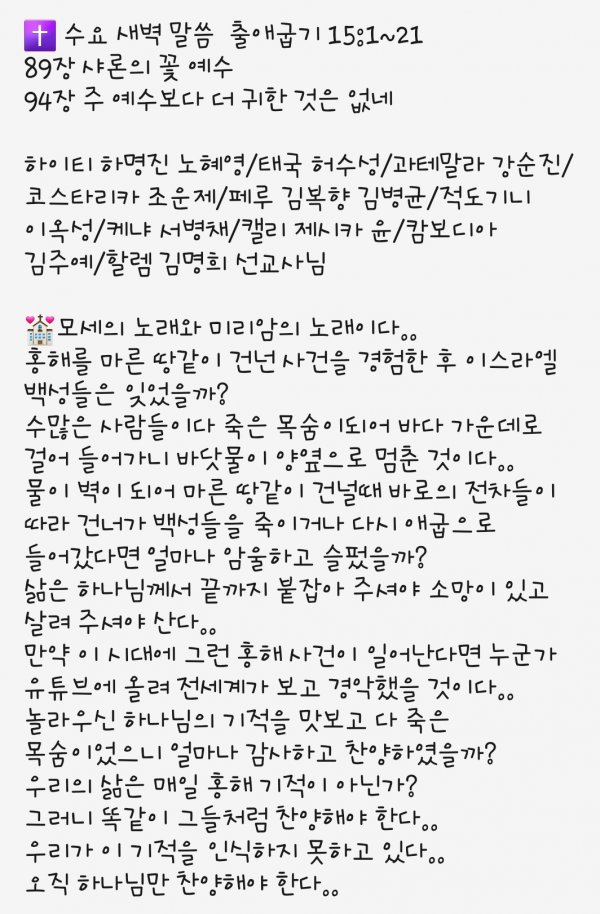 ✝️ 수요 새벽 말씀  출애굽기 15:1~21
89장 샤론의 꽃 예수
94장 주 예수보다 더 귀한 것은 없네
하이티 하명진 노혜영/태국 허수성/과테말라 강순진/
코스타리카 조운제/페루 김복향 김병균/적도기니
이옥성/케냐 서병채/캘리 제시카 윤/캄보디아
김주예/할렘 김명희 선교사님
💒모세의 노래와 미리암의 노래이다..
홍해를 마른 땅같이 건넌 사건을 경험한 후 이스라엘
백성들은 잊었을까?
수많은 사람들이다 죽은 목숨이되어 바다 가운데로
걸어 들어가니 바닷물이 양옆으로 멈춘 것이다..
물이 벽이 되어 마른 땅같이 건널때 바로의 전차들이
따라 건너가 백성들을 죽이거나 다시 애굽으로
들어갔다면 얼마나 암울하고 슬펐을까?
삶은 하나님께서 끝까지 붙잡아 주셔야 소망이 있고
살려 주셔야 산다..
만약 이 시대에 그런 홍해 사건이 일어난다면 누군가
유튜브에 올려 전세계가 보고 경악했을 것이다..
놀라우신 하나님의 기적을 맛보고 다 죽은
목숨이었으니 얼마나 감사하고 찬양하였을까?
우리의 삶은 매일 홍해 기적이 아닌가?
그러니 똑같이 그들처럼 찬양해야 한다..
우리가 이 기적을 인식하지 못하고 있다..
오직 하나님만 찬양해야 한다..